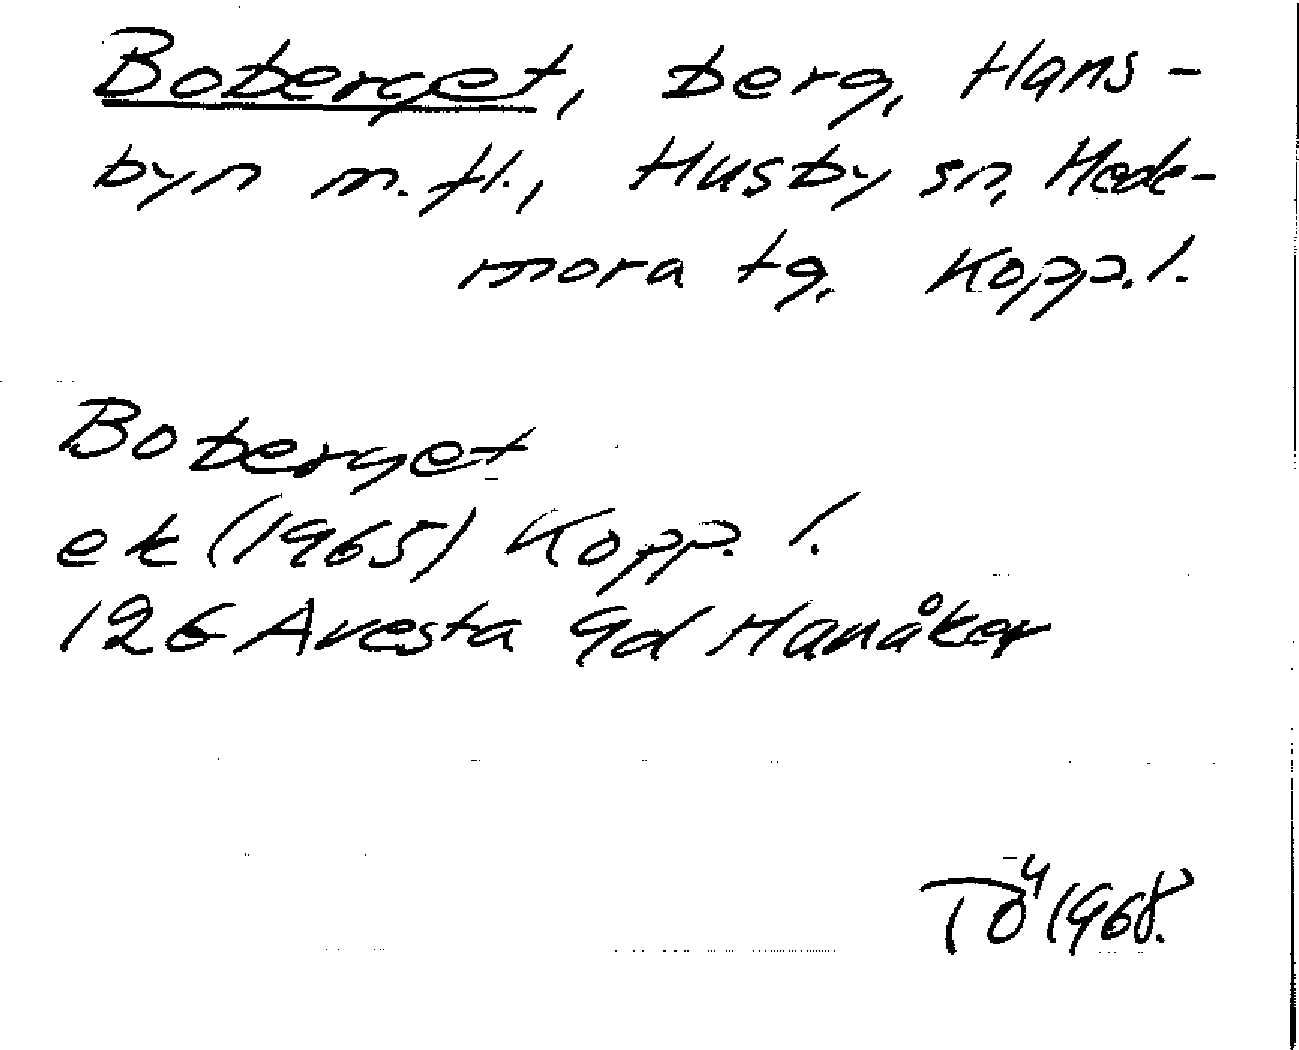 Boberget, berg, Hans-
byn m.fl., Husby sn, Hede-
mora tg, Kopp.l.
Boberget
ek (1965) Kopp. l.
12G Avesta 9d Hanåker
TÖ 1968.